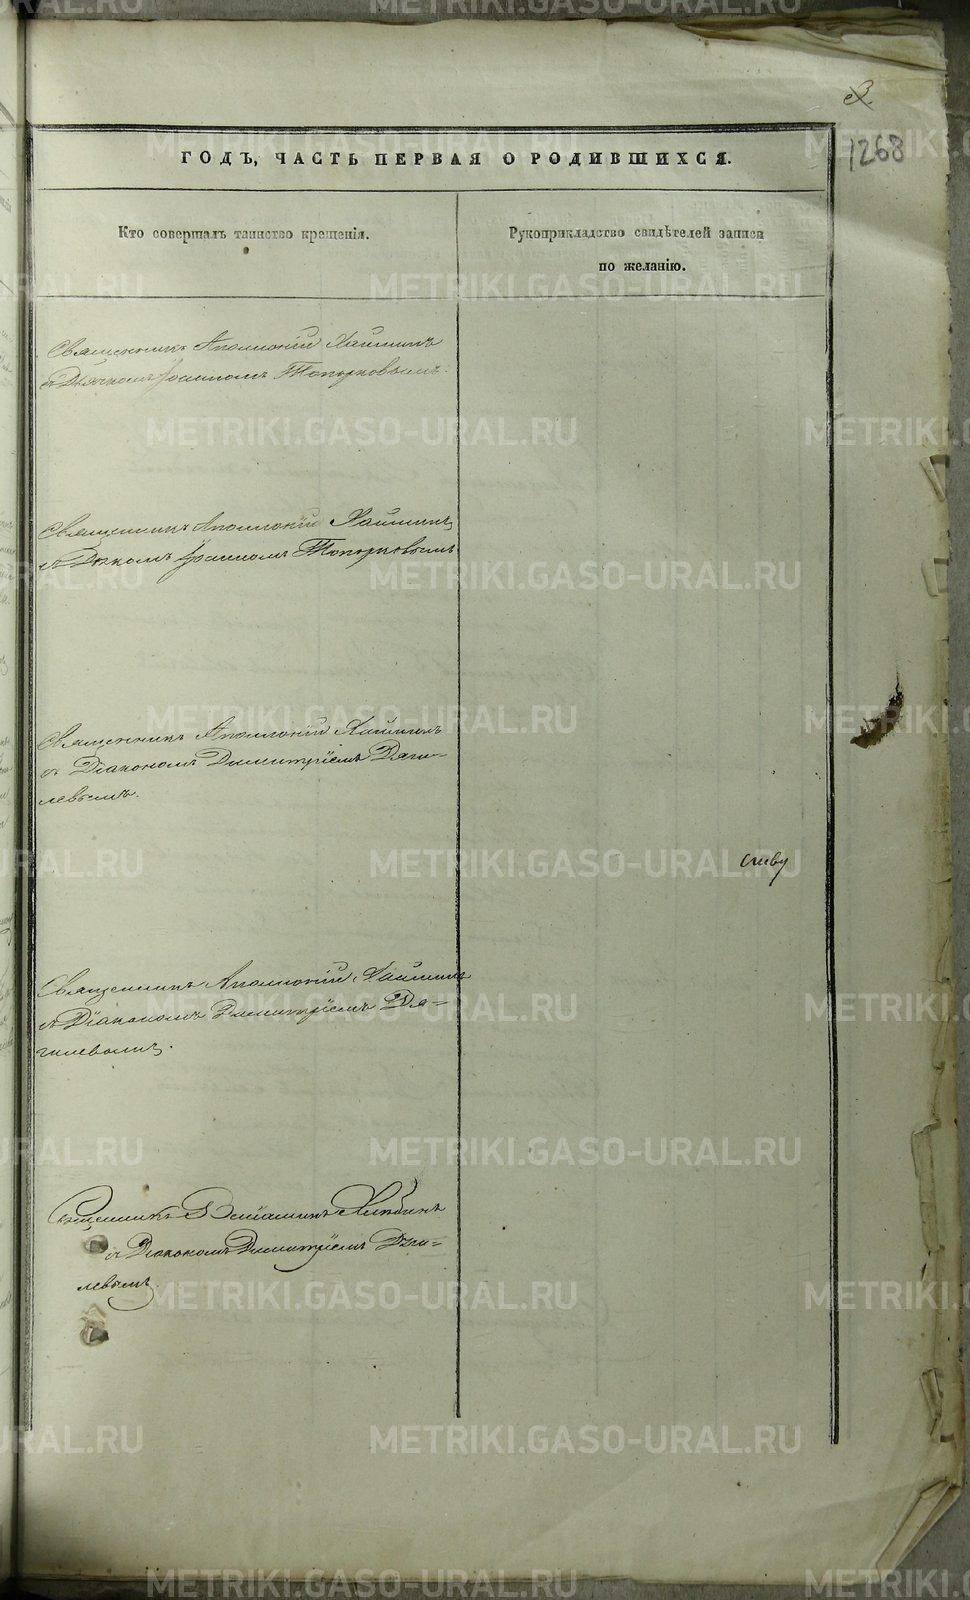 1268
ГОДЪ, ЧАСТЬ ПЕРВАЯ О РОДИВШИХСЯ.
Кто совершалъ таинство крещенія.
Рукоприкладство свидѣтелей записи
по желанію.
Священникъ Аполлоній
съ Дьячкомъ Іоанномъ Топорковымъ.
Священникъ Аполлоній
съ Іоанномъ Топорковымъ
Священникъ Аполлоній
съ Діакономъ Димитріемъ Дяги-
левымъ.
Священникъ Аполлоній
съ Діакономъ Димитріемъ Дя-
гилевымъ.
Священникъ Веніаминъ Хлѣбинъ
съ Діакономъ Димитріемъ Дяги-
левымъ.
METRIKI.GASO-URAL.RU